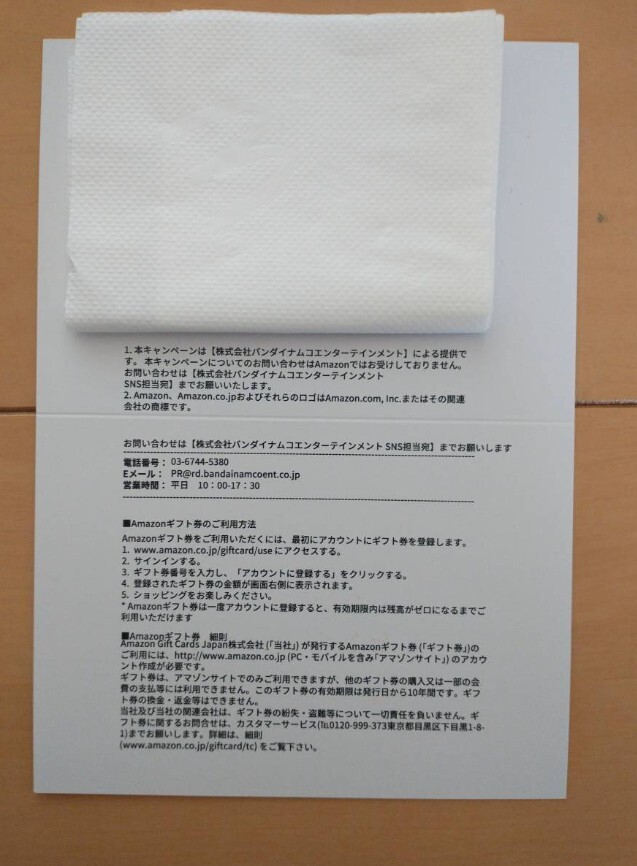 1. 本キャンペーンは【株式会社バンダイナムコエンターテインメント】による提供で
す。 本キャンペーンについてのお問い合わせはAmazonではお受けしておりません。
お問い合わせは【株式会社バンダイナムコエンターテインメント
SNS担当宛】までお願いいたします。
2. Amazon、Amazon.co.jpおよびそれらのロゴはAmazon.com, Inc.またはその関連
会社の商標です。
お問い合わせは【株式会社バンダイナムコエンターテインメント SNS担当宛】までお願いします
電話番号： 03-6744-5380
Eメール： PR@rd.bandainamcoent.co.jp
営業時間： 平日　10：00-17：30
■Amazonギフト券のご利用方法
Amazonギフト券をご利用いただくには、最初にアカウントにギフト券を登録します。
1. www.amazon.co.jp/giftcard/use にアクセスする。
2. サインインする。
3. ギフト券番号を入力し、「アカウントに登録する」をクリックする。
4. 登録されたギフト券の金額が画面右側に表示されます。
5. ショッピングをお楽しみください。
* Amazonギフト券は一度アカウントに登録すると、有効期限内は残高がゼロになるまでご
利用いただけます
■Amazonギフト券　細則
Amazon Gift Cards Japan株式会社 (「当社」) が発行するAmazonギフト券 (「ギフト券」)の
ご利用には、http://www.amazon.co.jp (PC・モバイルを含み「アマゾンサイト」) のアカウ
ント作成が必要です。
ギフト券は、アマゾンサイトでのみご利用できますが、他のギフト券の購入又は一部の会
費の支払等には利用できません。このギフト券の有効期限は発行日から10年間です。ギフ
ト券の換金・返金等はできません。
当社及び当社の関連会社は、ギフト券の紛失・盗難等について一切責任を負いません。ギ
フト券に関するお問合せは、カスタマーサービス(℡0120-999-373東京都目黒区下目黒1-8-
1)までお願いします。詳細は、細則
(www.amazon.co.jp/giftcard/tc) をご覧下さい。